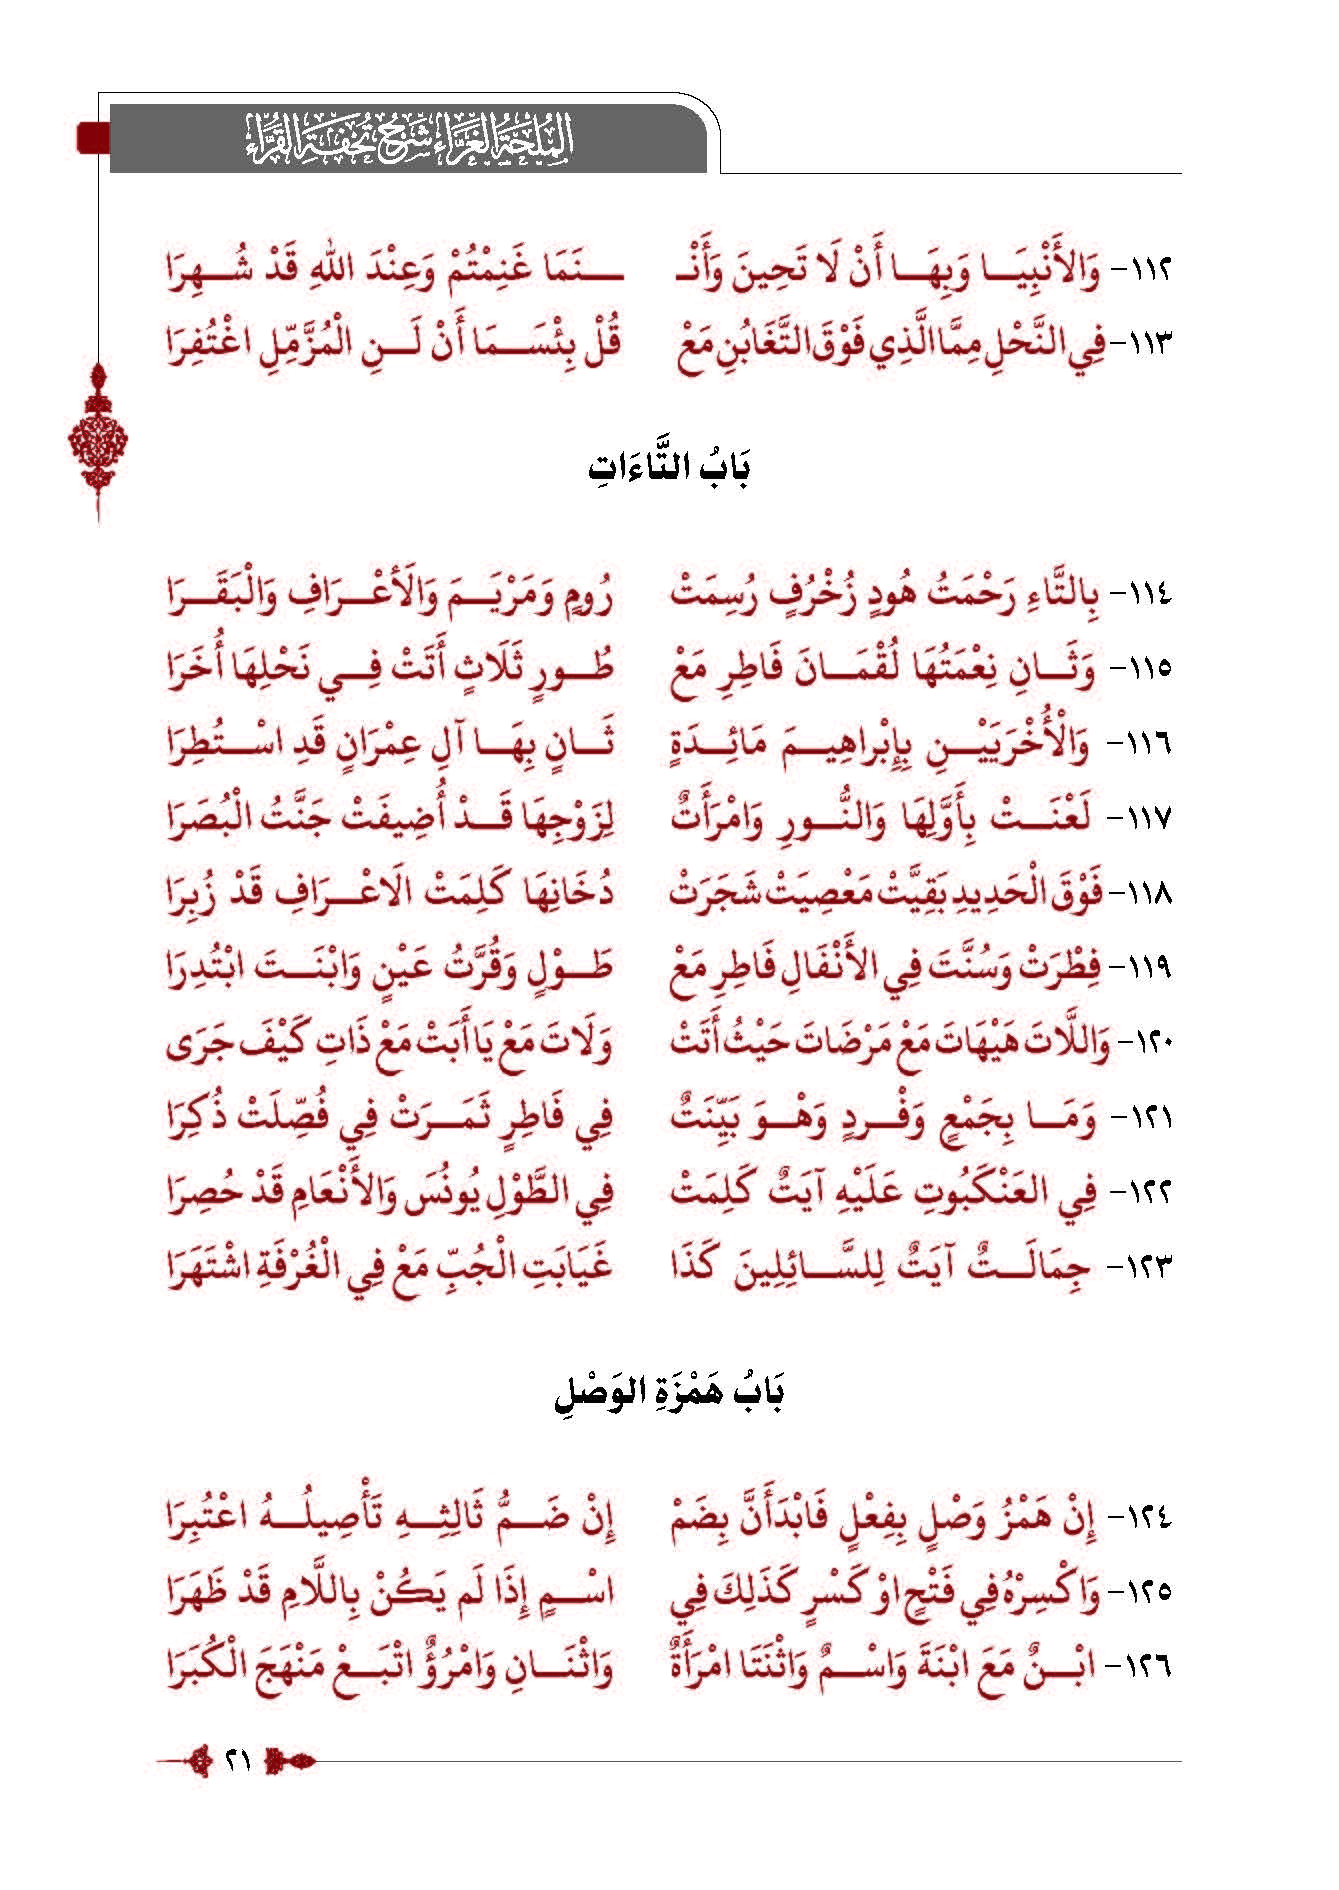 المُلْحَةُ الغَرَّاءِ شَرْحُ تُحْفَةِ القُرَّاءِ
١١٢- وَالأَنْبِيَـــا وَبِهَـــا أَنْ لَا تَحِينَ وَأَنْـ ـــنَمَا غَنِمْتُمْ وَعِنْدَ اللهِ قَدْ شُـــهِرَا
١١٣- فِي النَّحْلِ مِمَّا الَّذِي فَوْقَ التَّغَابُنِ مَعْ قُلْ بِئْسَـــمَا أَنْ لَـــنِ الْمُزَّمِّلِ اغْتُفِرَا
بَابُ التَّاءَاتِ
١١٤- بِالتَّاءِ رَحْمَتُ هُودٍ زُخْرُفٍ رُسِمَتْ رُومٍ وَمَرْيَـــمَ وَالَأعْـــرَافِ وَالْبَقَـــرَا
١١٥- وَثَـــانِ نِعْمَتُهَا لُقْمَـــانَ فَاطِرِ مَعْ طُـــورٍ ثَلَاثٍ أَتَتْ فِـــي نَحْلِهَا أُخَرَا
١١٦- وَالْأُخْرَيَيْـــنِ بِإِبْراهِيـــمَ مَائِـــدَةٍ ثَـــانٍ بِهَـــا آلِ عِمْرَانٍ قَدِ اسْـــتُطِرَا
١١٧- لَعْنَـــتْ بِأَوَّلِهَا وَالنُّـــورِ وَامْرَأَتٌ لِزَوْجِهَا قَـــدْ أُضِيفَتْ جَنَّتُ الْبُصَرَا
١١٨- فَوْقَ الْحَدِيدِ بَقِيَّتْ مَعْصِيَتْ شَجَرَتْ دُخَانِهَا كَلِمَتْ الَاعْـــرَافِ قَدْ زُبِرَا
١١٩- فِطْرَتْ وَسُنَّتَ فِي الأَنْفَالِ فَاطِرِ مَعْ طَـــوْلٍ وَقُرَّتُ عَيْنٍ وَابْنَـــتَ ابْتُدِرَا
١٢٠- وَاللَّاتَ هَيْهَاتَ مَعْ مَرْضَاتَ حَيْثُ أَتَتْ وَلَاتَ مَعْ يَا أَبَتْ مَعْ ذَاتِ كَيْفَ جَرَى
١٢١- وَمَـــا بِجَمْعٍ وَفْـــردٍ وَهْـــوَ بَيِّنَتٌ فِي فَاطِرٍ ثَمَـــرَتْ فِي فُصِّلَتْ ذُكِرَا
١٢٢- فِي العَنْكَبُوتِ عَلَيْهِ آيَتٌ كَلِمَتْ فِي الطَّوْلِ يُونُسَ وَالأَنْعَامِ قَدْ حُصِرَا
١٢٣- جِمَالَـــتٌ آيَتٌ لِلسَّـــائِلِينَ كَذَا غَيَابَتِ الْجُبِّ مَعْ فِي الْغُرْفَةِ اشْتَهَرَا
بَابُ هَمْزَةِ الوَصْلِ
١٢٤- إِنْ هَمْزُ وَصْلٍ بِفِعْلٍ فَابْدَأَنَّ بِضَمْ إِنْ ضَـــمُّ ثَالِثِـــهِ تَأْصِيلُـــهُ اعْتُبِرَا
١٢٥- وَاكْسِرْهُ فِي فَتْحٍ اوْ كَسْرٍ كَذَلِكَ فِي اسْـــمٍ إِذَا لَم يَكُنْ بِاللَّامِ قَدْ ظَهَرَا
١٢٦- ابْـــنٌ مَعَ ابْنَةَ وَاسْـــمٌ وَاثْنَتَا امْرَأَةٌ وَاثْنَـــانِ وَامْرُؤٌ اتْبَـــعْ مَنْهَجَ الْكُبَرَا
٢١